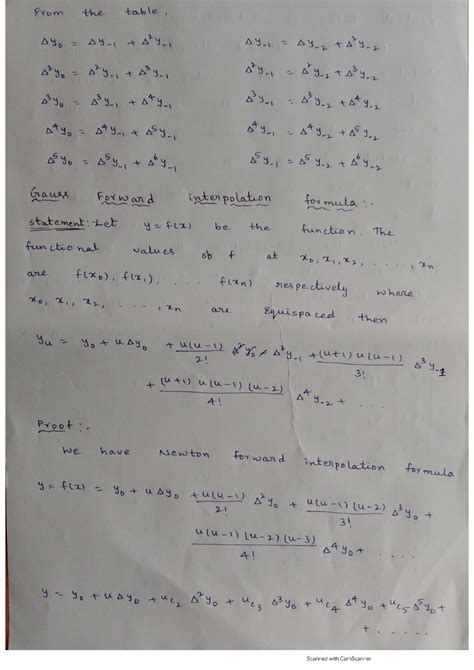 From the table,
Δy₀ = Δy₋₁ + Δ²y₋₁ Δy₋₁ = Δy₋₂ + Δ²y₋₂
Δ²y₀ = Δ²y₋₁ + Δ³y₋₁ Δ²y₋₁ = Δ²y₋₂ + Δ³y₋₂
Δ³y₀ = Δ³y₋₁ + Δ⁴y₋₁ Δ³y₋₁ = Δ³y₋₂ + Δ⁴y₋₂
Δ⁴y₀ = Δ⁴y₋₁ + Δ⁵y₋₁ Δ⁴y₋₁ = Δ⁴y₋₂ + Δ⁵y₋₂
Δ⁵y₀ = Δ⁵y₋₁ + Δ⁶y₋₁ Δ⁵y₋₁ = Δ⁵y₋₂ + Δ⁶y₋₂
Gauss Forward interpolation formula :-
statement:- Let y = f(x) be the function. The
functional values of f at x₀, x₁, x₂, ...., xₙ
are f(x₀), f(x₁), .... f(xₙ) respectively where
x₀, x₁, x₂, ...., xₙ are equispaced then
yᵤ = y₀ + uΔy₀ + u(u-1)/2! Δ²y₋₁ + (u+1)u(u-1)/3! Δ³y₋₁
+ (u+1)u(u-1)(u-2)/4! Δ⁴y₋₂ + ....
Proof :-
We have Newton forward interpolation formula
y = f(x) = y₀ + uΔy₀ + u(u-1)/2! Δ²y₀ + u(u-1)(u-2)/3! Δ³y₀ +
u(u-1)(u-2)(u-3)/4! Δ⁴y₀ + .....
y = y₀ + uΔy₀ + uc₂ Δ²y₀ + uc₃ Δ³y₀ + uc₄ Δ⁴y₀ + uc₅ Δ⁵y₀ +
+ .....
Scanned with CamScanner